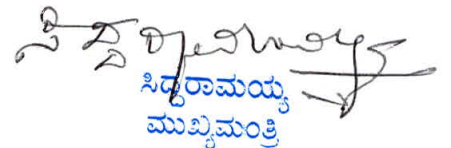 ಸಿದ್ದರಾಮಯ್ಯ
ಸಿದ್ದರಾಮಯ್ಯ
ಮುಖ್ಯಮಂತ್ರಿ